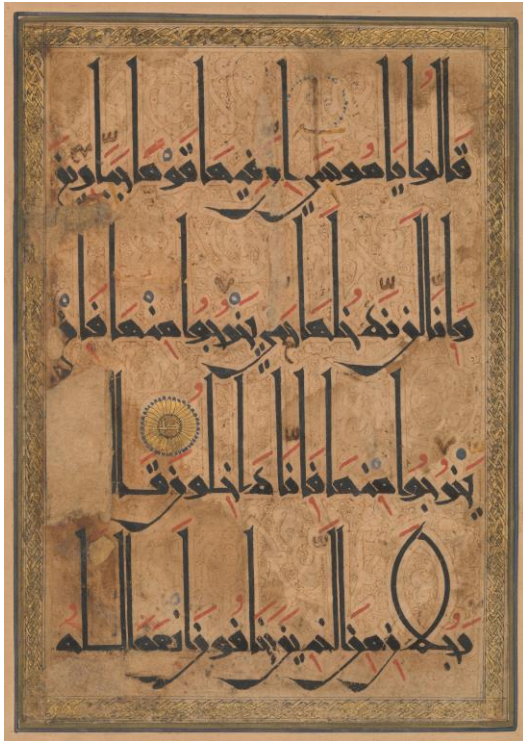 قالوا يا موسى ان فيها قوما جبارين
وانا لن ندخلها حتى يخرجوا منها فان
يخرجوا منها فانا داخلون قال
رجلان من الذين يخافون انعم الله